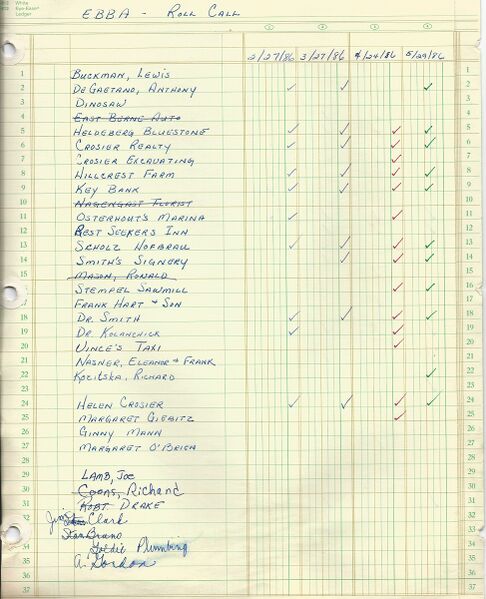 White
Eye-Ease
Ledger
EBBA - ROLL CALL
1 2 3 4
2/27/86 3/27/86 4/24/86 5/29/86
1 BUCKMAN, LEWIS 1
2 DEGAETANO, ANTHONY ✓ ✓ ✓ 2
3 DINOSAW 3
4 EAST BERNE AUTO 4
5 HELDEBERG BLUESTONE ✓ ✓ ✓ ✓ 5
6 CROSIER REALTY ✓ ✓ ✓ ✓ 6
7 CROSIER EXCAVATING ✓ 7
8 HILLCREST FARM ✓ ✓ ✓ ✓ 8
9 KEY BANK ✓ ✓ ✓ ✓ 9
10 NAGENGAST FLORIST 10
11 OSTERHOUT'S MARINA ✓ ✓ 11
12 BEST SEEKERS INN 12
13 SCHOLZ HOFBRAU ✓ ✓ ✓ ✓ 13
14 SMITH'S SIGNERY ✓ ✓ ✓ 14
15 MASON, RONALD 15
16 STEMPEL SAWMILL ✓ ✓ 16
17 FRANK HART + SON 17
18 DR. SMITH ✓ ✓ ✓ ✓ 18
19 DR. KOLANCHICK ✓ ✓ 19
20 VINCE'S TAXI ✓ 20
21 NASNER, ELEANOR + FRANK 21
22 KOZITSKA, RICHARD ✓ 22
23
24 HELEN CROSIER ✓ ✓ ✓ ✓ 24
25 MARGARET GIEBITZ ✓ 25
26 GINNY MANN 26
27 MARGARET O'BRIEN 27
28 28
29 LAMB, JOE 29
30 Coons, Richard 30
31 ROBT. DRAKE 31
32 Jim Clark 32
33 Stan Bruno
34 Goldie Plumbing 34
35 A. Gordon 35
36 36
37 37